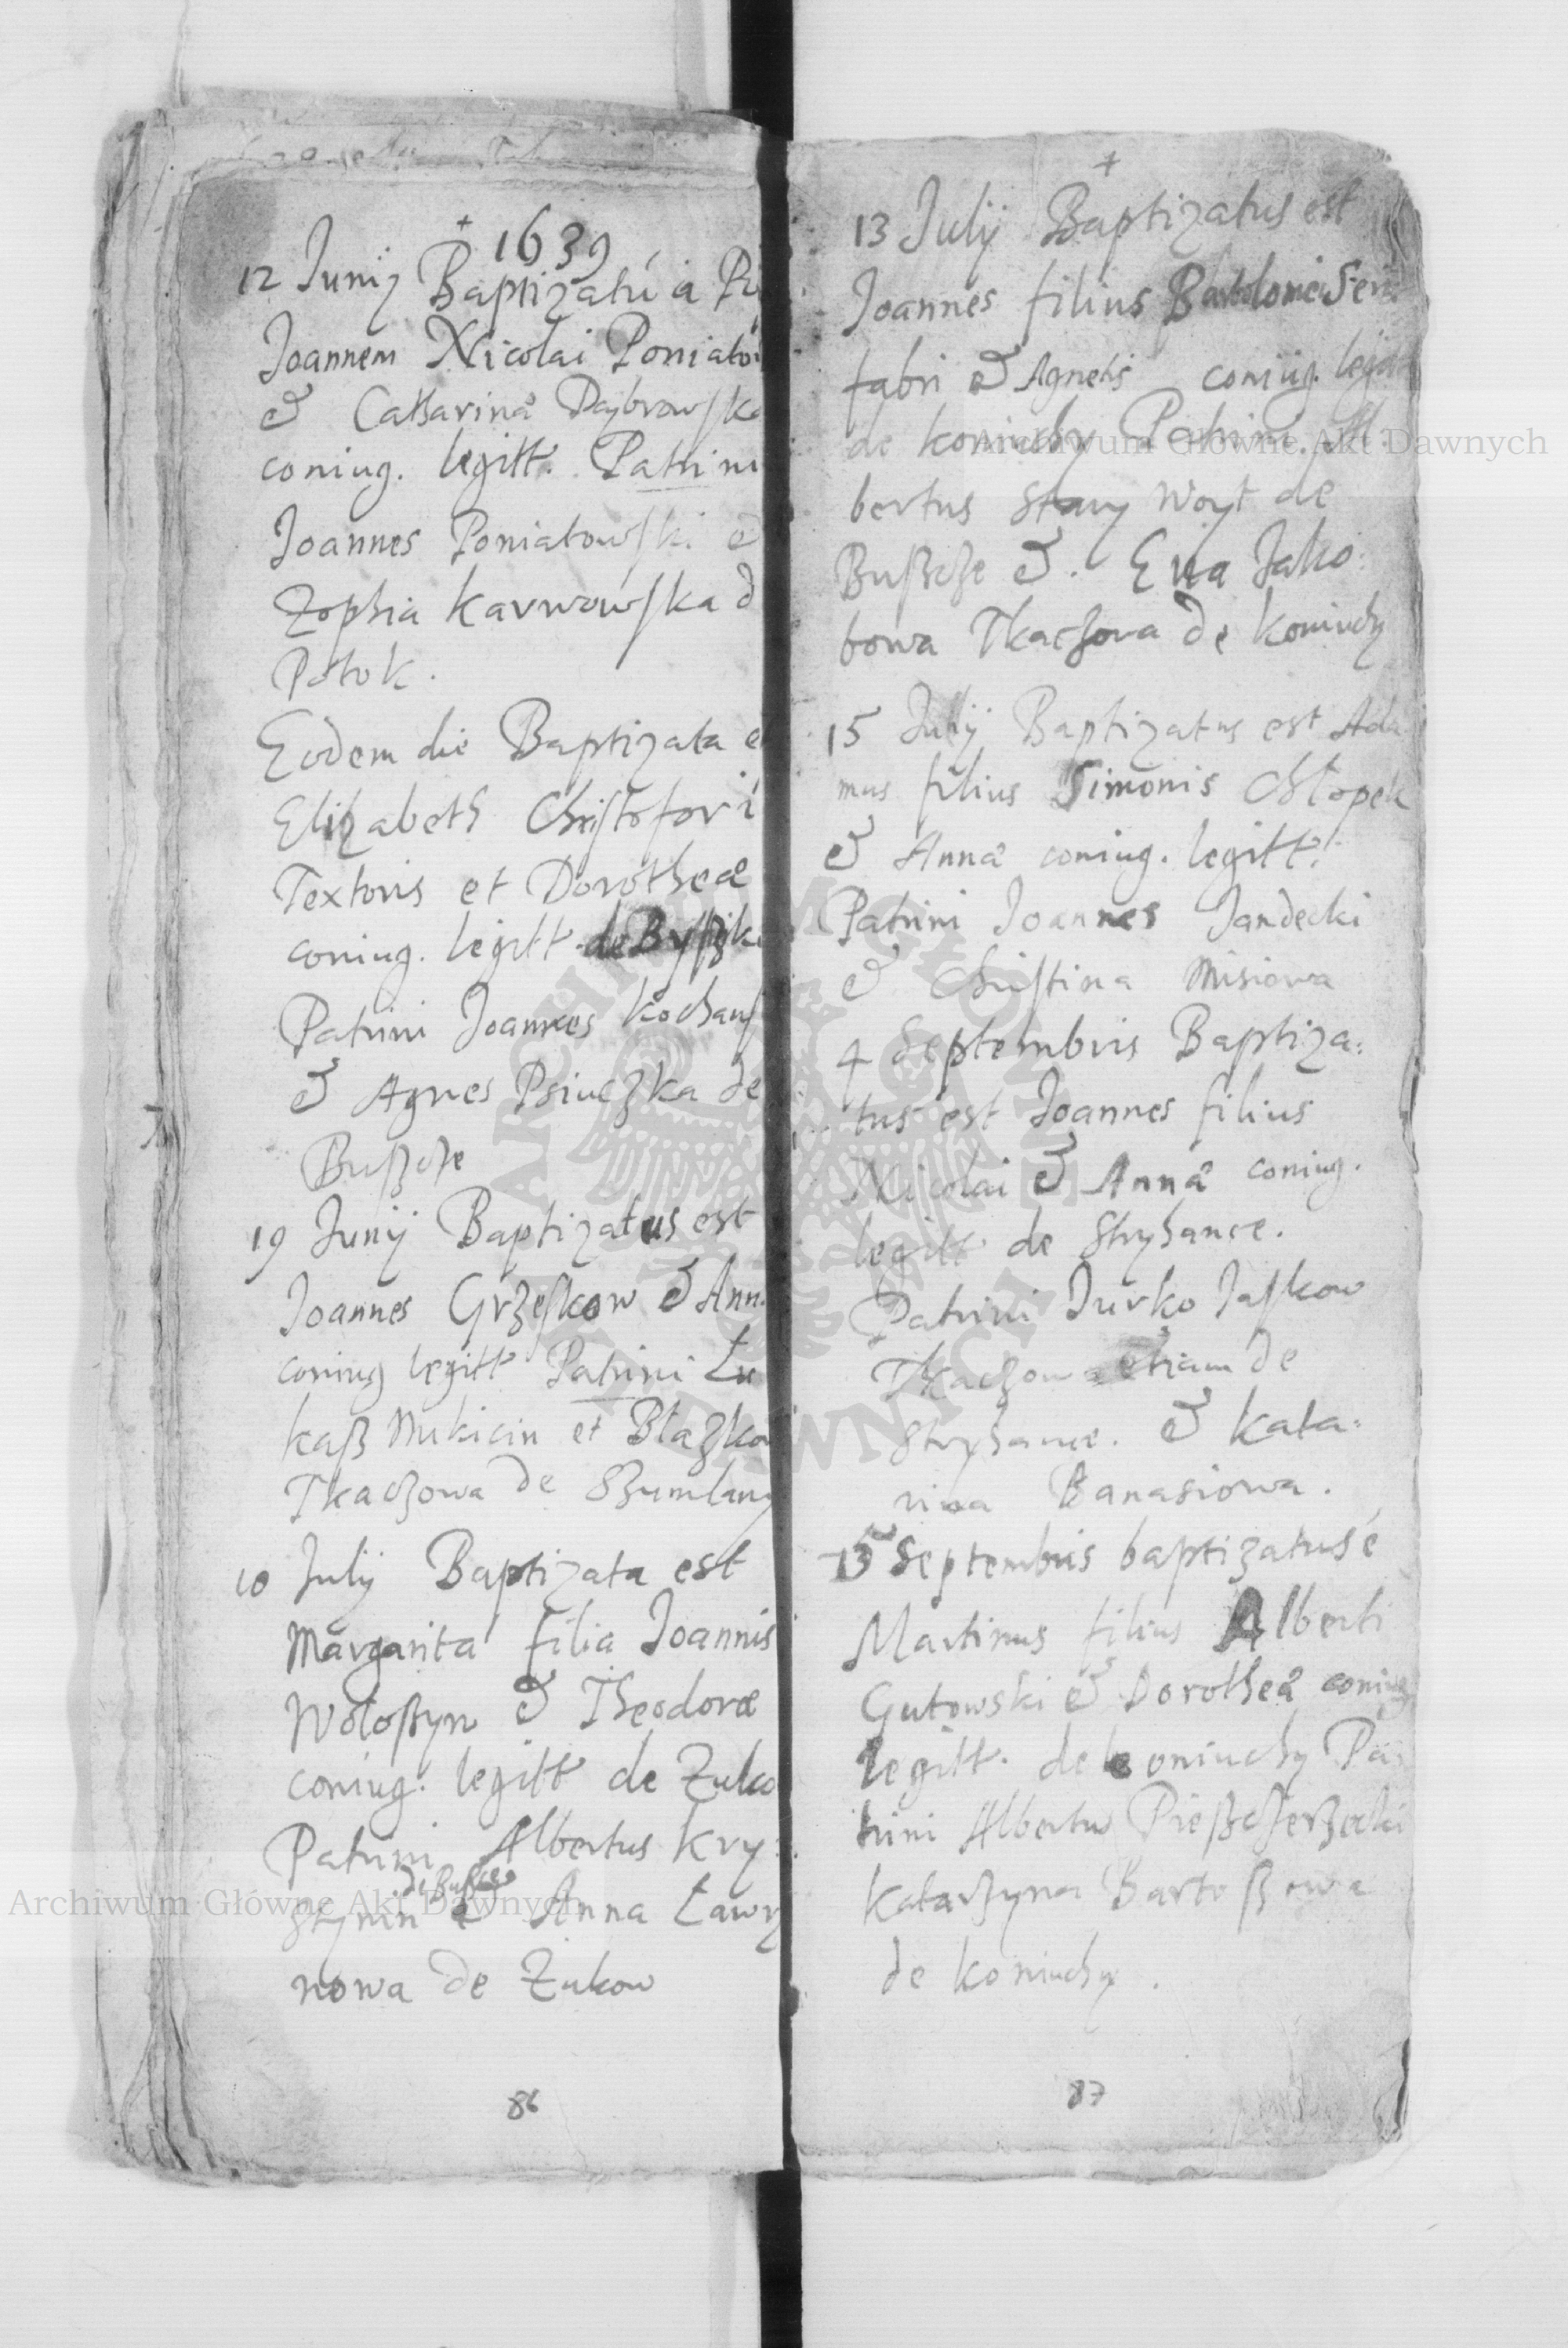 1639
12 Junij Baptizatu a
Joannem Nicolai Poniatow
& Catharinæ Dąybrowska
coniug. legitt. Patrini
Joannes Poniatowski &
Zophia Karwowska d
Potok.
Eodem die Baptizata e
Elizabeth Christofori
Textoris et Dorotheæ
coniug. legitt. de
Patrini Joannes Kochans
& Agnes Psiuczka de
Bußcze
19 Junij Baptizatus est
Joannes Grzeskow & Ann
coniug legitt Patrini Łu
kaß Mikicin et Błazkow
Tkaczowa de Szumlany
10 Julij Baptizata est
Margarita filia Joannis
Wołoßyn & Theodoræ
coniug. legitt de Zuko
Patrini Albertus Kry:
de Bußcze
stynin & Anna Ławry
nowa de Zukow
86
13 Julij Baptizatus est
Joannes filius Bartolomei
fabri & Agnetis coniug. legitt
de Koniuchy Patrini Al
bertus Stary Woyt de
Bußcze &. Eua Jako:
bowa Tkaczowa de Koniuchy
15 Julij Baptizatus est Ada
mus filius Simonis Chłopek
& Annæ coniug. legitt.
Patrini Joannes Jandecki
& Christina Misiowa
4 Septembris Baptiza:
tus est Joannes filius
Nicolai & Annæ coniug.
legitt de Stryhance.
Patrini Jurko Jaskow
Tkaczow etiam de
Stryhance. & Kata:
rina Banasiowa.
15 Septembris baptizatus é
Martinus filius Alberti
Gutowski & Dorotheæ coniug
legitt. de Koniuchy Pa
trini Albertus
Katarzyna Bartoßowa
de Koniuchy.
87
Archiwum Główne Akt Dawnych
Archiwum Główne Akt Dawnych
ARCHIWUM GŁÓWNE AKT DAWNYCH